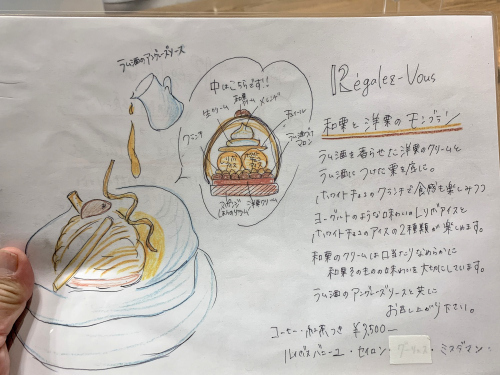 ラム酒のアングレーズソース
中はこちらです!!
和栗クリーム
生クリーム
メレンゲ
チュイール
ラム酒づけマロン
クランチ
Lリガアイス
ホワイトチョコアイス
洋栗クリーム
Régalez-Vous
和栗と洋栗のモンブラン
ラム酒を香らせた洋栗クリームと
ラム酒につけた栗を底に。
ホワイトチョコのクランチで食感も楽しみつつ
ヨーグルトのような味わいのLリガアイスと
ホワイトチョコのアイスの2種類が楽しめます。
和栗のクリームは口当たりなめらかに
和栗そのものの味わいを大切にしています。
ラム酒のアングレーズソースと共に
お召し上がり下さい。
コーヒー・紅茶つき ¥3,500-
ルイボスバニーユ・セイロン・ダージリン・ミスダマン